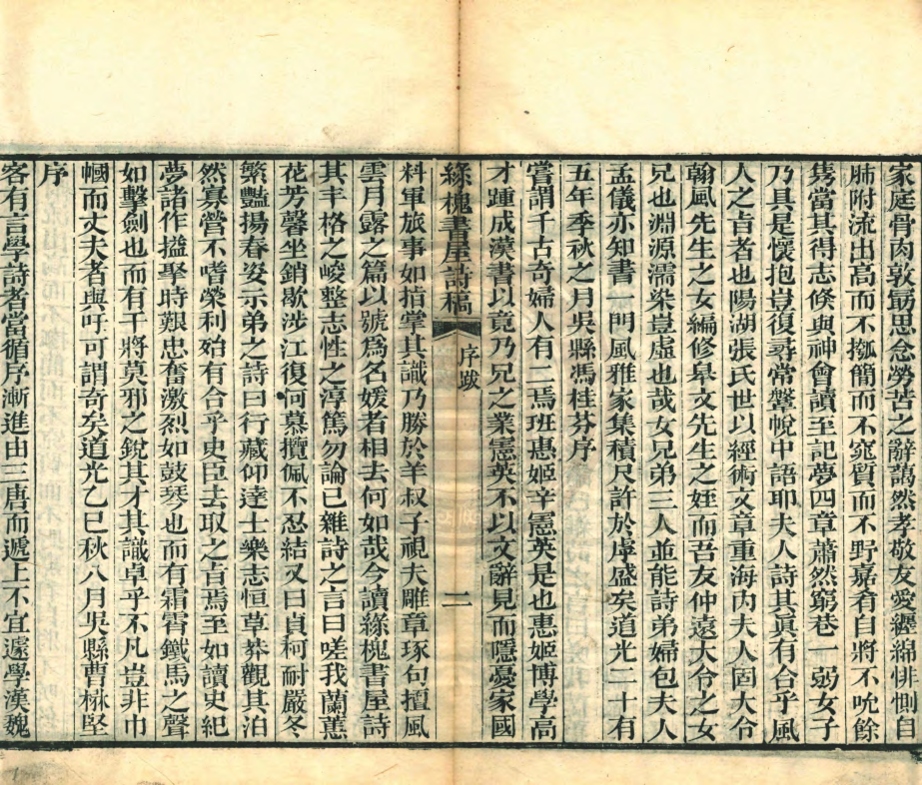 家庭骨肉敦勗思念勞苦之辭藹然孝敬友愛纏綿悱惻自
肺附流出高而不摦簡而不窕質而不野嘉肴自將不吮餘
雋當其得志倏與神會讀至記夢四章蕭然窮巷一弱女子
乃具是懷抱豈復尋常鞶帨中語耶夫人詩其眞有合乎風
人之旨者也陽湖張氏世以經術文章重海內夫人固大令
翰風先生之女編修皋文先生之姪而吾友仲遠大令之女
兄也淵源濡染豈虛也哉女兄弟三人並能詩弟婦包夫人
孟儀亦知書一門風雅家集積尺許於虖盛矣道光二十有
五年季秋之月吳縣馮桂芬序
嘗謂千古奇婦人有二焉班惠姬辛憲英是也惠姬博學高
才踵成漢書以竟乃兄之業憲英不以文辭見而隱憂家國
綠槐書屋詩稿
序跋
二
料軍旅事如指掌其識乃勝於羊叔子視夫雕章琢句擅風
雲月露之篇以號爲名媛者相去何如哉今讀綠槐書屋詩
其丰格之峻整志性之淳篤勿論已雜詩之言曰嗟我蘭蕙
花芳馨坐銷歇涉江復何慕攬佩不忍結又曰貞柯耐嚴冬
繁豔揚春姿示弟之詩曰行藏仰達士樂志恒草莽觀其泊
然寡營不嗜榮利殆有合乎史臣去取之旨焉至如讀史紀
夢諸作搤擥時艱忠奮激烈如鼓琴也而有霜霄鐵馬之聲
如擊劍也而有干將莫邪之銳其才其識卓乎不凡豈非巾
幗而丈夫者與吁可謂奇矣道光乙巳秋八月吳縣曹楙堅
序
客有言學詩者當循序漸進由三唐而遞上不宜遽學漢魏